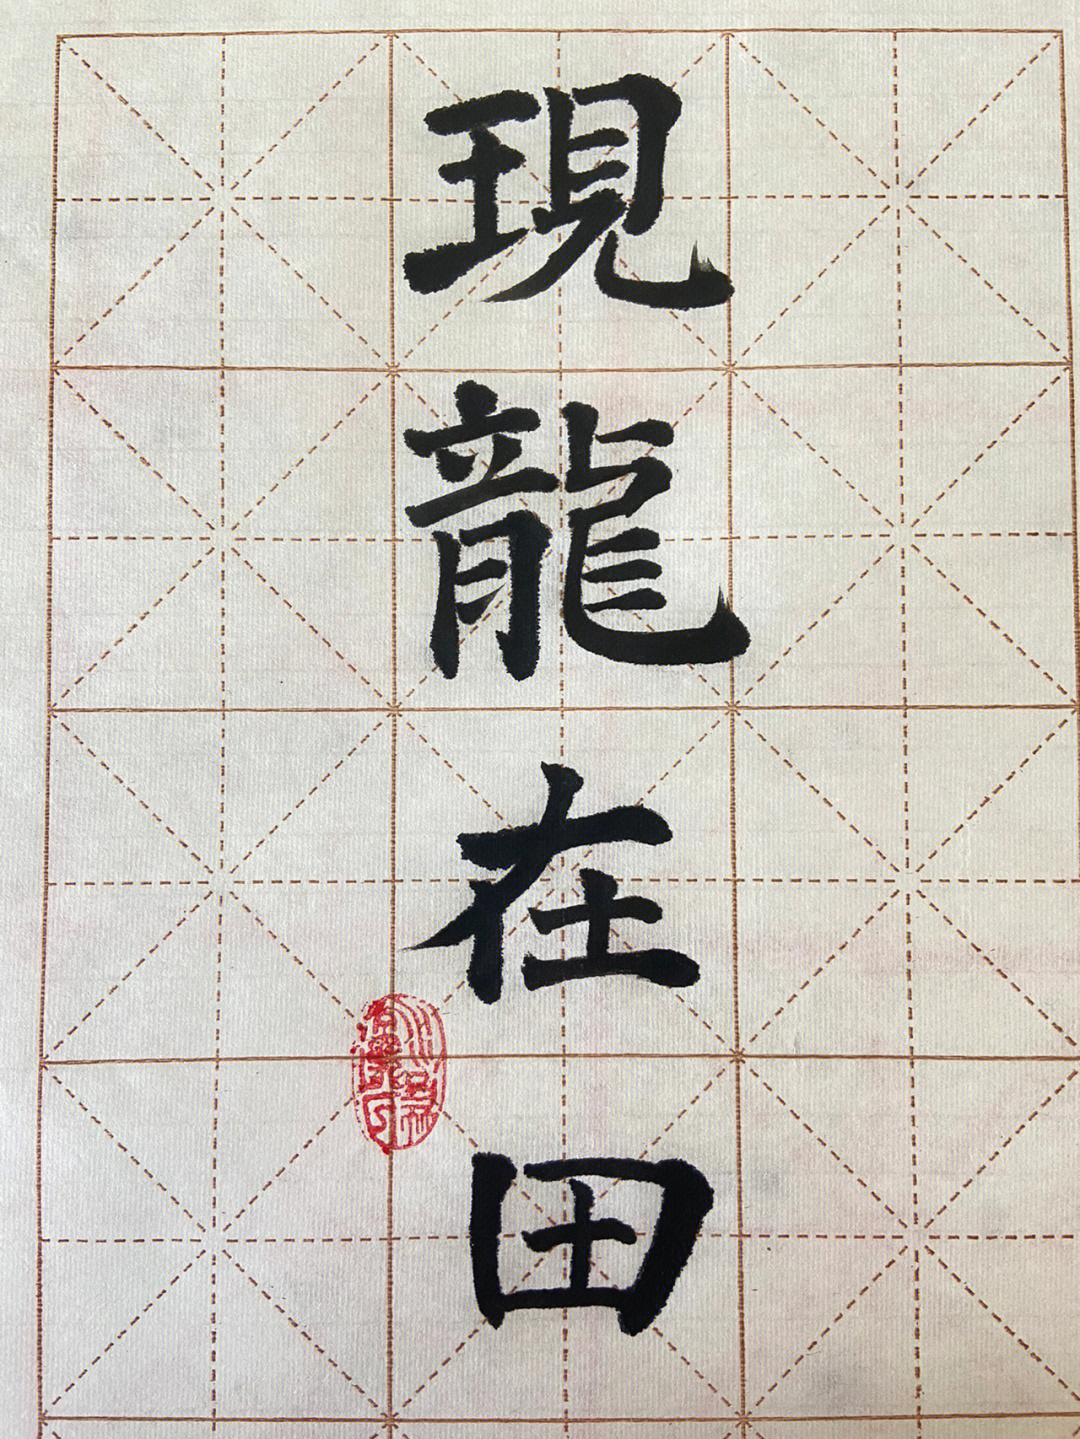 現龍在田